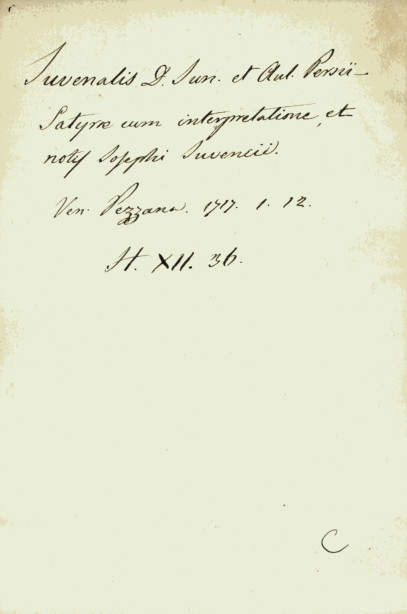 Iuvenalis D. Iun. et Aul. Persii
Satyræ cum interpretatione, et
notis Iosephi Iuvencii.
Ven. Pezzana. 1717. 1. 12.
H. XII. 36.
C